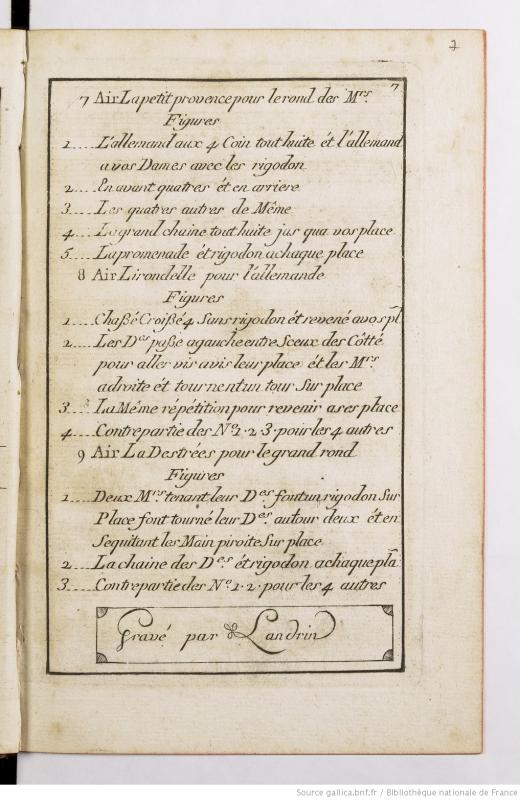 7
7
7 Air La petit provence pour le rond des Mrs.
Figures
1.... L'allemand aux 4 Coin tout huite ét l'allemand
a vos Dames avec les rigodon
2.... En avant quatres ét en arriere
3.... Les quatres autres de Même
4.... La grand chaine tout huite jus qua vos place
5.... La promenade ét rigodon a chaque place
8 Air Lirondelle pour l'allemande
Figures
1.... Chaßé Croißé 4 Sans rigodon ét revené a vos pl
2.... Les Des paße a gauche entre Sceux des Côtté
pour aller vis avis leur place ét les Mrs
a droite ét tournent un tour Sur place
3.... La Même répétition pour revenir a ser place
4.... Contrepartie des No. 1. 2. 3. pour les 4 autres
9 Air La Destrées pour le grand rond
Figures
1.... Deux Mrs tenant leur Des font un rigodon Sur
Place font tourné leur Des. autour deux ét en
Sequitant les Main piroite Sur place
2.... La chaine des Des ét rigodon a chaque pla
3.... Contrepartie des No. 1. 2. pour les 4 autres
Gravé par Landrin
Source gallica.bnf.fr / Bibliothèque nationale de France